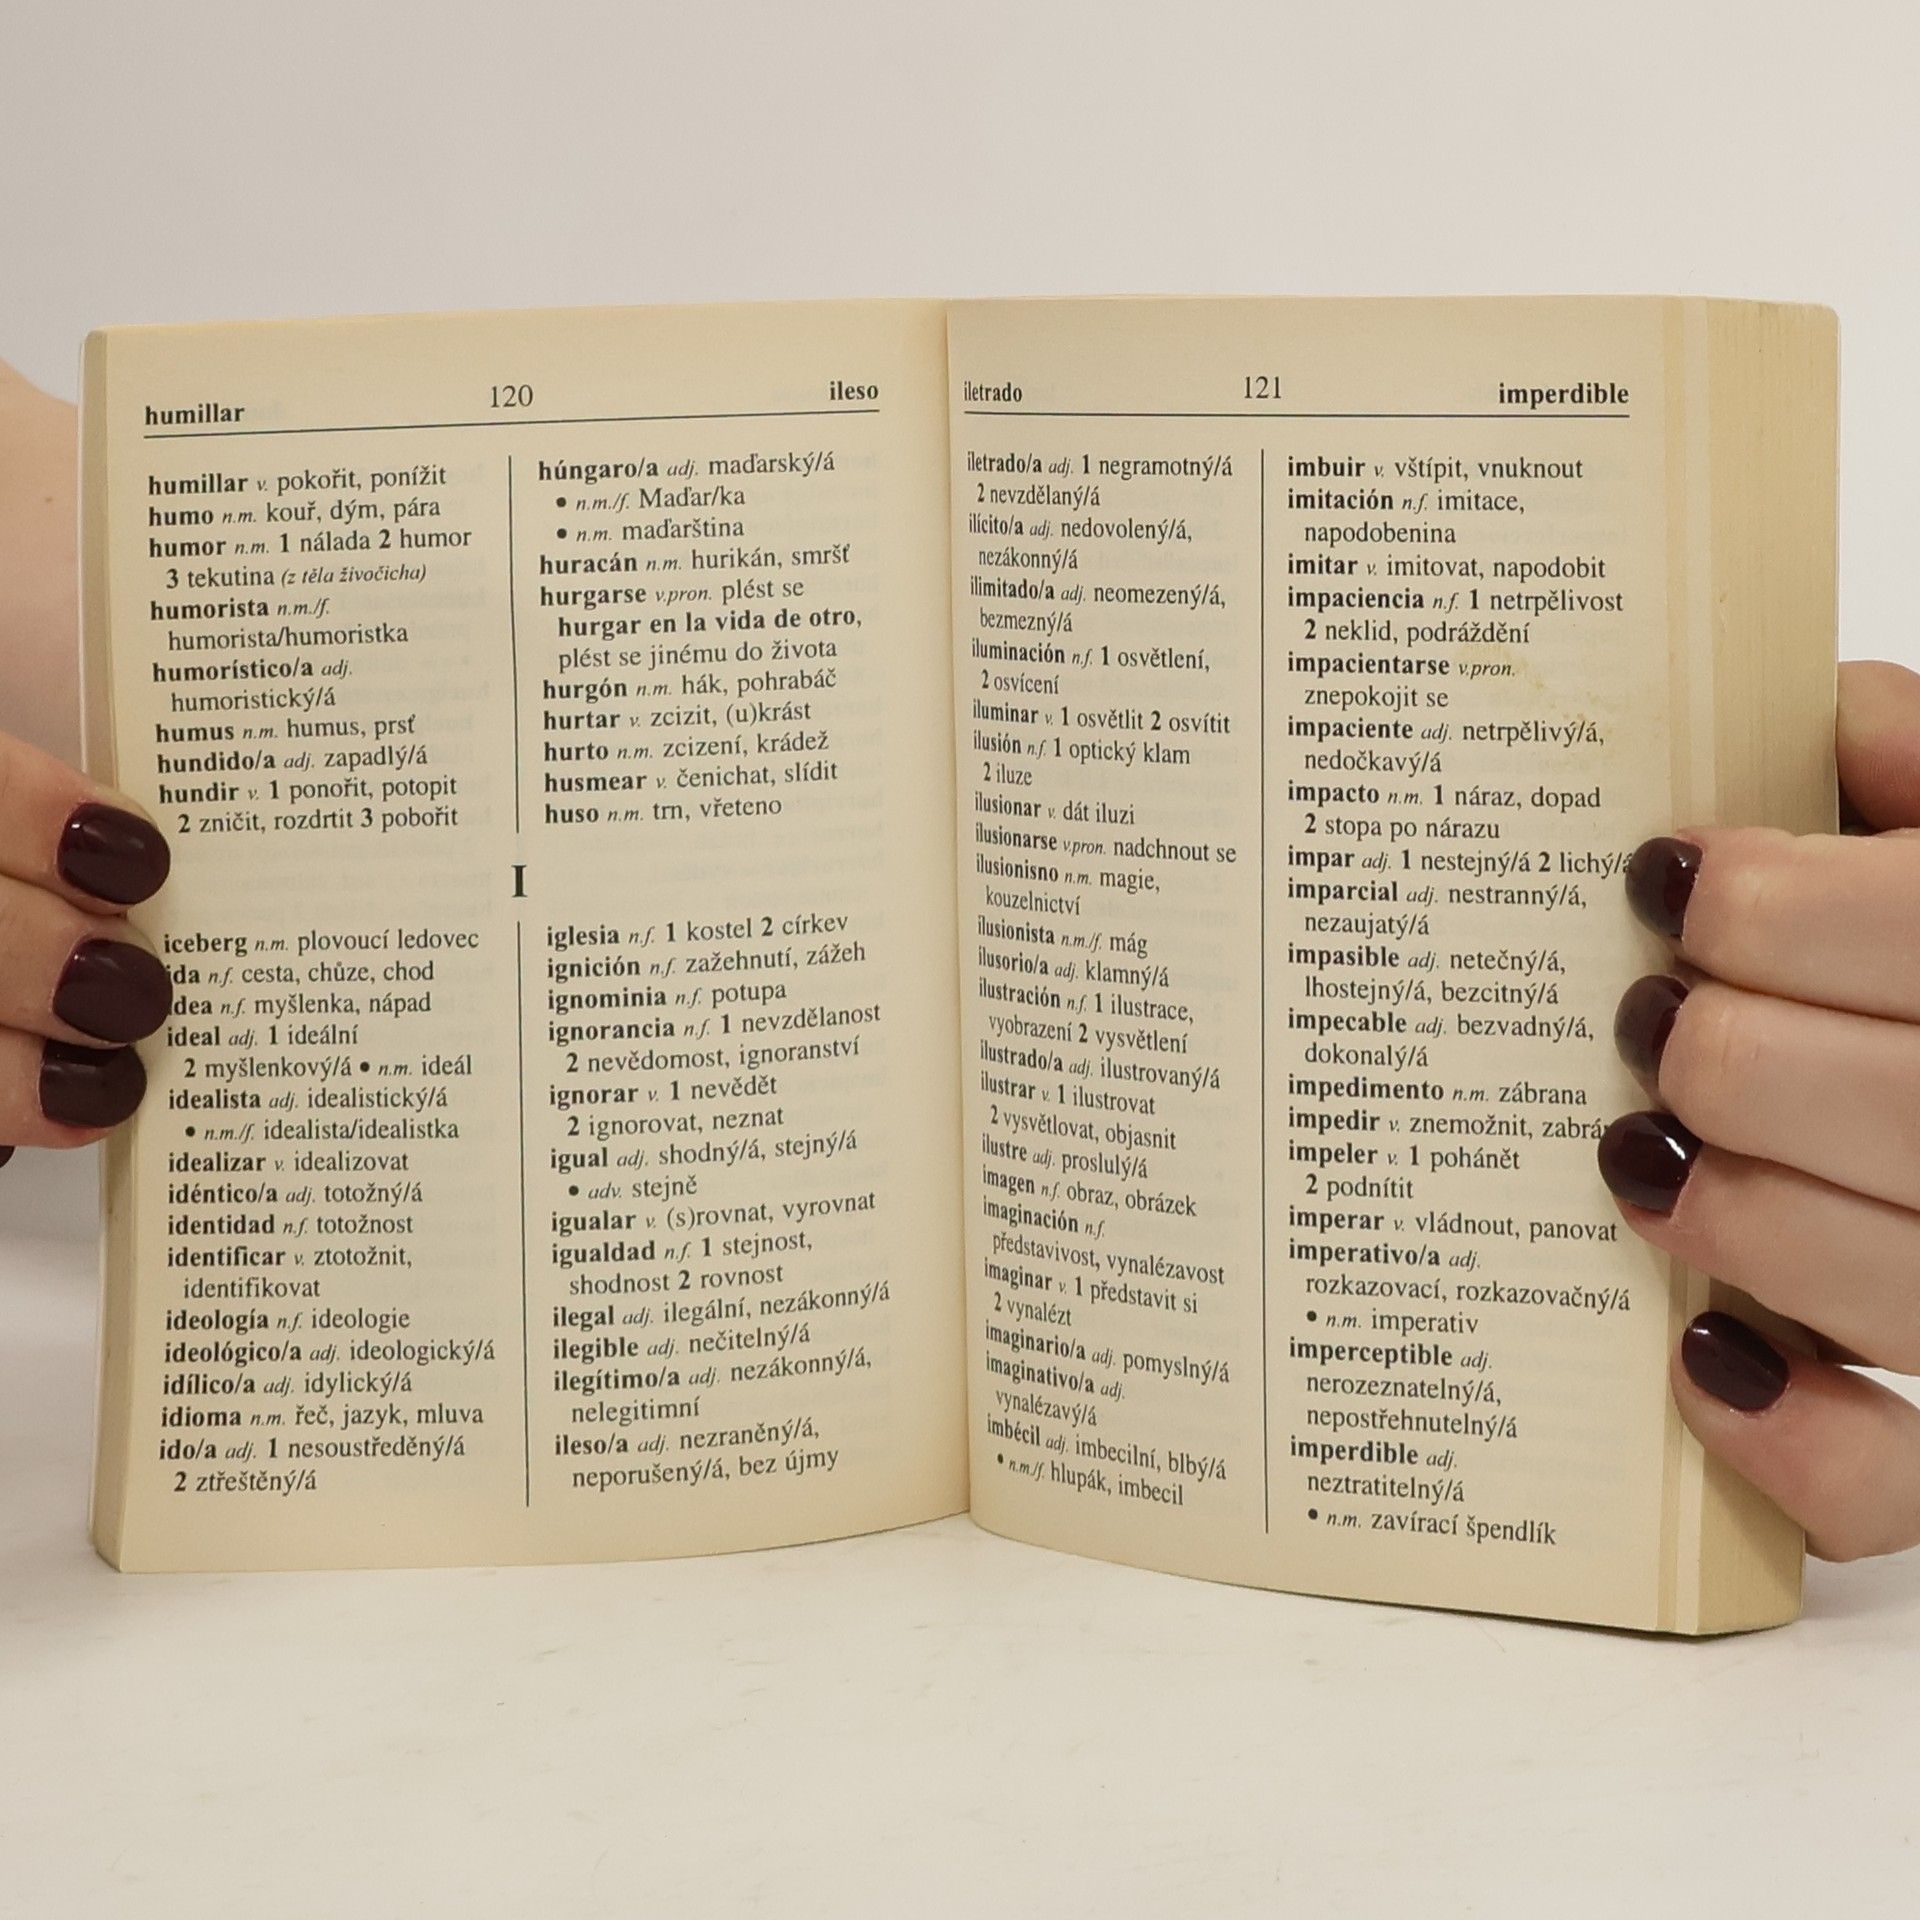 humillar 120 ileso
humillar v. pokořit, ponížit
humo n.m. kouř, dým, pára
humor n.m. 1 nálada 2 humor
3 tekutina (z těla živočicha)
humorista n.m./f.
humorista/humoristka
humorístico/a adj.
humoristický/á
humus n.m. humus, prsť
hundido/a adj. zapadlý/á
hundir v. 1 ponořit, potopit
2 zničit, rozdrtit 3 pobořit
húngaro/a adj. maďarský/á
• n.m./f. Maďar/ka
• n.m. maďarština
huracán n.m. hurikán, smršť
hurgarse v.pron. plést se
hurgar en la vida de otro,
plést se jinému do života
hurgón n.m. hák, pohrabáč
hurtar v. zcizit, (u)krást
hurto n.m. zcizení, krádež
husmear v. čenichat, slídit
huso n.m. trn, vřeteno
I
iceberg n.m. plovoucí ledovec
ida n.f. cesta, chůze, chod
idea n.f. myšlenka, nápad
ideal adj. 1 ideální
2 myšlenkový/á • n.m. ideál
idealista adj. idealistický/á
• n.m./f. idealista/idealistka
idealizar v. idealizovat
idéntico/a adj. totožný/á
identidad n.f. totožnost
identificar v. ztotožnit,
identifikovat
ideología n.f. ideologie
ideológico/a adj. ideologický/á
idílico/a adj. idylický/á
idioma n.m. řeč, jazyk, mluva
ido/a adj. 1 nesoustředěný/á
2 ztřeštěný/á
iglesia n.f. 1 kostel 2 církev
ignición n.f. zažehnutí, zážeh
ignominia n.f. potupa
ignorancia n.f. 1 nevzdělanost
2 nevědomost, ignoranství
ignorar v. 1 nevědět
2 ignorovat, neznat
igual adj. shodný/á, stejný/á
• adv. stejně
igualar v. (s)rovnat, vyrovnat
igualdad n.f. 1 stejnost,
shodnost 2 rovnost
ilegal adj. ilegální, nezákonný/á
ilegible adj. nečitelný/á
ilegítimo/a adj. nezákonný/á,
nelegitimní
ileso/a adj. nezraněný/á,
neporušený/á, bez újmy
iletrado 121 imperdible
iletrado/a adj. 1 negramotný/á
2 nevzdělaný/á
ilícito/a adj. nedovolený/á,
nezákonný/á
ilimitado/a adj. neomezený/á,
bezmezný/á
iluminación n.f. 1 osvětlení,
2 osvícení
iluminar v. 1 osvětlit 2 osvítit
ilusión n.f. 1 optický klam
2 iluze
ilusionar v. dát iluzi
ilusionarse v.pron. nadchnout se
ilusionisno n.m. magie,
kouzelnictví
ilusionista n.m./f. mág
ilusorio/a adj. klamný/á
ilustración n.f. 1 ilustrace,
vyobrazení 2 vysvětlení
ilustrado/a adj. ilustrovaný/á
ilustrar v. 1 ilustrovat
2 vysvětlovat, objasnit
ilustre adj. proslulý/á
imagen n.f. obraz, obrázek
imaginación n.f.
představivost, vynalézavost
imaginar v. 1 představit si
2 vynalézt
imaginario/a adj. pomyslný/á
imaginativo/a adj.
vynalézavý/á
imbécil adj. imbecilní, blbý/á
• n.m./f. hlupák, imbecil
imbuir v. vštípit, vnuknout
imitación n.f. imitace,
napodobenina
imitar v. imitovat, napodobit
impaciencia n.f. 1 netrpělivost
2 neklid, podráždění
impacientarse v.pron.
znepokojit se
impaciente adj. netrpělivý/á,
nedočkavý/á
impacto n.m. 1 náraz, dopad
2 stopa po nárazu
impar adj. 1 nestejný/á 2 lichý/á
imparcial adj. nestranný/á,
nezaujatý/á
impasible adj. netečný/á,
lhostejný/á, bezcitný/á
impecable adj. bezvadný/á,
dokonalý/á
impedimento n.m. zábrana
impedir v. znemožnit,
impeler v. 1 pohánět
2 podnítit
imperar v. vládnout, panovat
imperativo/a adj.
rozkazovací, rozkazovačný/á
• n.m. imperativ
imperceptible adj.
nerozeznatelný/á,
nepostřehnutelný/á
imperdible adj.
neztratitelný/á
• n.m. zavírací špendlík